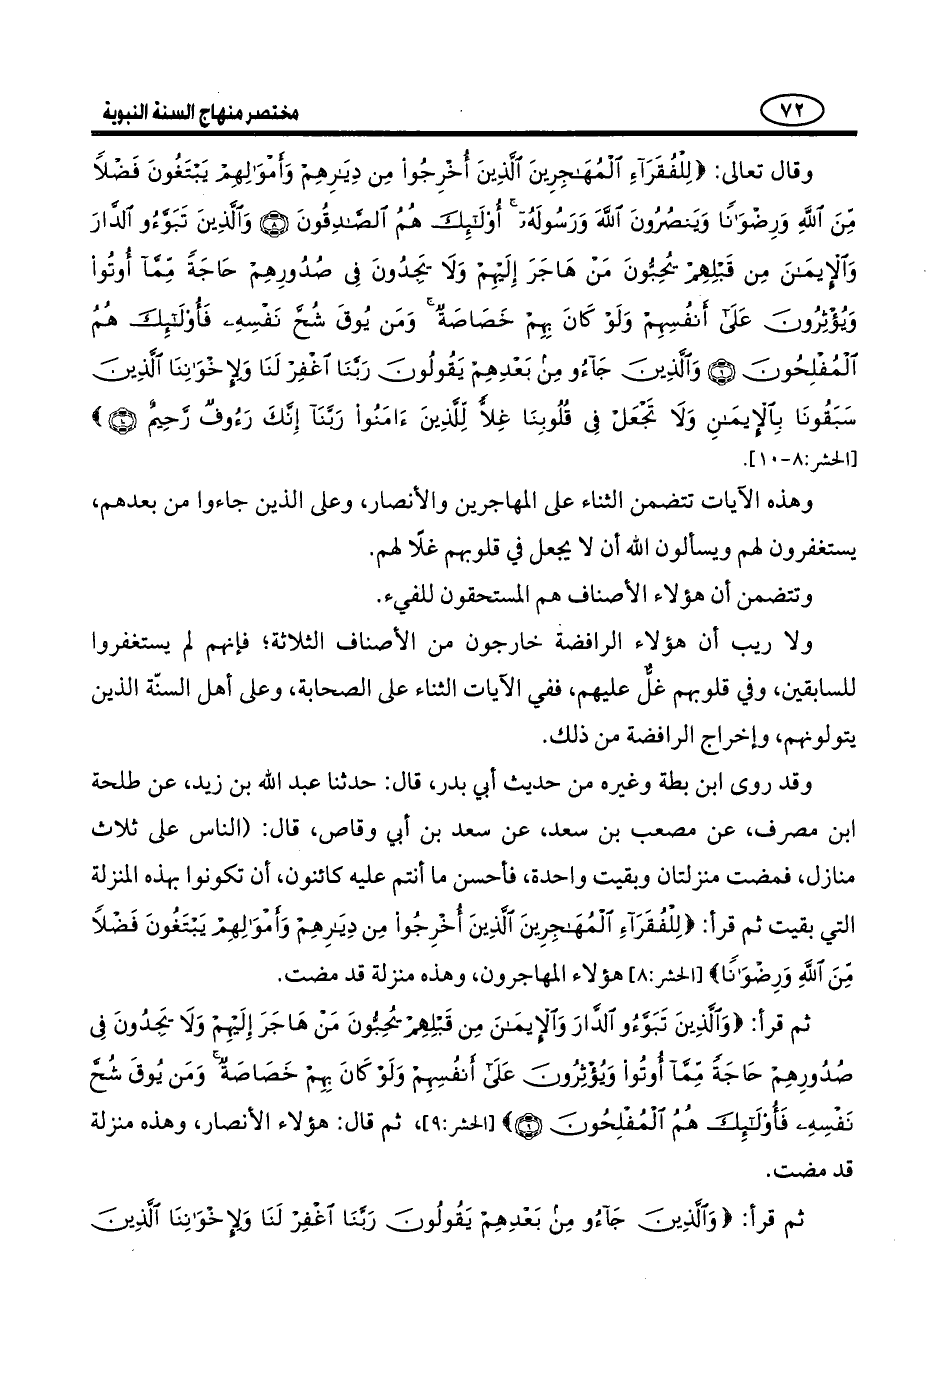 ٧٢ مختصر منهاج السنة النبوية
وقال تعالى: ﴿ لِلْفُقَرَآءِ ٱلْمُهَـٰجِرِينَ ٱلَّذِينَ أُخْرِجُوا۟ مِن دِيَـٰرِهِمْ وَأَمْوَٰلِهِمْ يَبْتَغُونَ فَضْلًا
مِّنَ ٱللَّهِ وَرِضْوَٰنًا وَيَنصُرُونَ ٱللَّهَ وَرَسُولَهُۥٓ ۚ أُو۟لَـٰٓئِكَ هُمُ ٱلصَّـٰدِقُونَ ۝٨ وَٱلَّذِينَ تَبَوَّءُو ٱلدَّارَ
وَٱلْإِيمَـٰنَ مِن قَبْلِهِمْ يُحِبُّونَ مَنْ هَاجَرَ إِلَيْهِمْ وَلَا يَجِدُونَ فِى صُدُورِهِمْ حَاجَةً مِّمَّآ أُوتُوا۟
وَيُؤْثِرُونَ عَلَىٰٓ أَنفُسِهِمْ وَلَوْ كَانَ بِهِمْ خَصَاصَةٌ ۚ وَمَن يُوقَ شُحَّ نَفْسِهِۦ فَأُو۟لَـٰٓئِكَ هُمُ
ٱلْمُفْلِحُونَ ۝٩ وَٱلَّذِينَ جَآءُو مِنۢ بَعْدِهِمْ يَقُولُونَ رَبَّنَا ٱغْفِرْ لَنَا وَلِإِخْوَٰنِنَا ٱلَّذِينَ
سَبَقُونَا بِٱلْإِيمَـٰنِ وَلَا تَجْعَلْ فِى قُلُوبِنَا غِلًّا لِّلَّذِينَ ءَامَنُوا۟ رَبَّنَآ إِنَّكَ رَءُوفٌ رَّحِيمٌ ۝١٠ ﴾
[الحشر:٨-١٠].
وهذه الآيات تتضمن الثناء على المهاجرين والأنصار، وعلى الذين جاءوا من بعدهم،
يستغفرون لهم ويسألون الله أن لا يجعل في قلوبهم غلًا لهم.
وتتضمن أن هؤلاء الأصناف هم المستحقون للفيء.
ولا ريب أن هؤلاء الرافضة خارجون من الأصناف الثلاثة؛ فإنهم لم يستغفروا
للسابقين، وفي قلوبهم غلٌّ عليهم، ففي الآيات الثناء على الصحابة، وعلى أهل السنّة الذين
يتولونهم، وإخراج الرافضة من ذلك.
وقد روى ابن بطة وغيره من حديث أبي بدر، قال: حدثنا عبد الله بن زيد، عن طلحة
ابن مصرف، عن مصعب بن سعد، عن سعد بن أبي وقاص، قال: (الناس على ثلاث
منازل، فمضت منزلتان وبقيت واحدة، فأحسن ما أنتم عليه كائنون، أن تكونوا بهذه المنزلة
التي بقيت ثم قرأ: ﴿ لِلْفُقَرَآءِ ٱلْمُهَـٰجِرِينَ ٱلَّذِينَ أُخْرِجُوا۟ مِن دِيَـٰرِهِمْ وَأَمْوَٰلِهِمْ يَبْتَغُونَ فَضْلًا
مِّنَ ٱللَّهِ وَرِضْوَٰنًا﴾ [الحشر:٨] هؤلاء المهاجرون، وهذه منزلة قد مضت.
ثم قرأ: ﴿ وَٱلَّذِينَ تَبَوَّءُو ٱلدَّارَ وَٱلْإِيمَـٰنَ مِن قَبْلِهِمْ يُحِبُّونَ مَنْ هَاجَرَ إِلَيْهِمْ وَلَا يَجِدُونَ فِى
صُدُورِهِمْ حَاجَةً مِّمَّآ أُوتُوا۟ وَيُؤْثِرُونَ عَلَىٰٓ أَنفُسِهِمْ وَلَوْ كَانَ بِهِمْ خَصَاصَةٌ ۚ وَمَن يُوقَ شُحَّ
نَفْسِهِۦ فَأُو۟لَـٰٓئِكَ هُمُ ٱلْمُفْلِحُونَ ۝٩﴾ [الحشر:٩]، ثم قال: هؤلاء الأنصار، وهذه منزلة
قد مضت.
ثم قرأ: ﴿ وَٱلَّذِينَ جَآءُو مِنۢ بَعْدِهِمْ يَقُولُونَ رَبَّنَا ٱغْفِرْ لَنَا وَلِإِخْوَٰنِنَا ٱلَّذِينَ